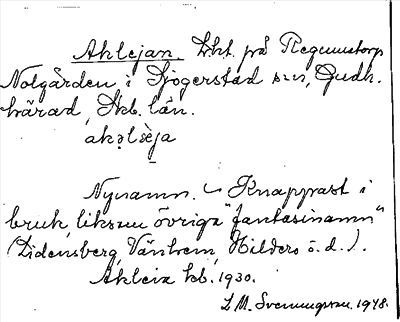 Aklejan. Lht. på Regumatorp
Nolgården i Sjogerstad sn, Gudh.
härad, Skb. län.
akəlèja
Nynamn. Knappast i
bruk, liksom övriga "fantasinamn"
(Lidensberg, Vänhem, Hildero o.d.).
Akleia kb. 1930.
L.M. Svenungsson. 1948.